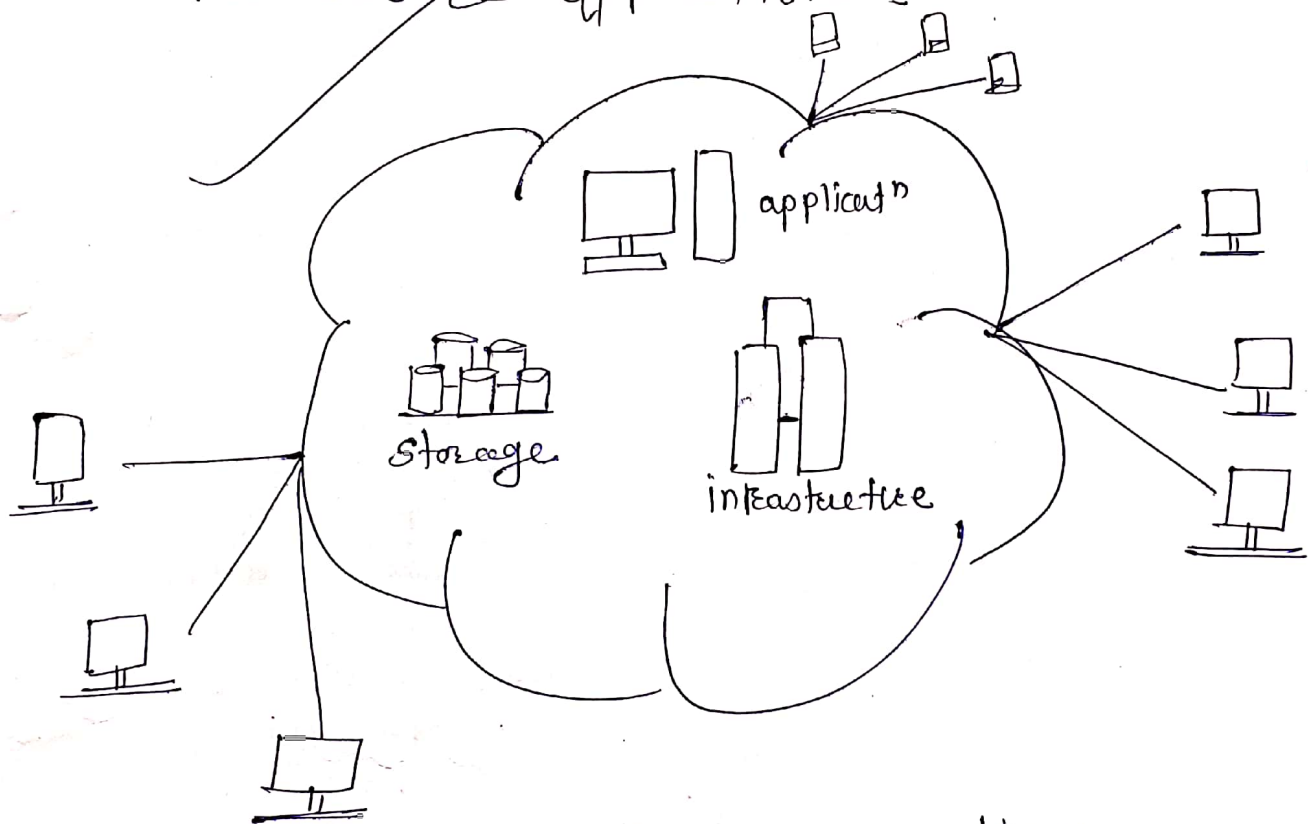 applicatⁿ
Storage
infrastructure